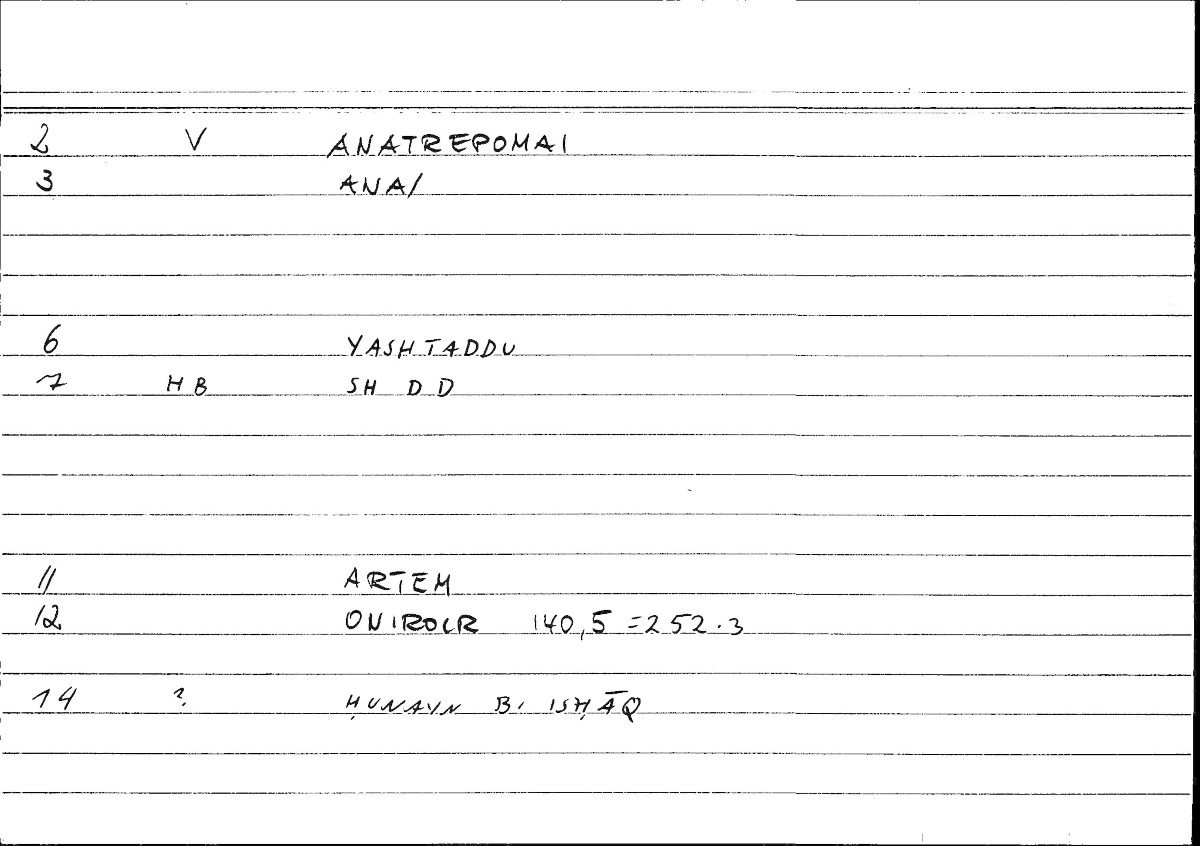 2 V ANATREPOMAI
3 ANA/
6 YASHTADDU
7 HB SH D D
11 ARTEM
12 ONIROCR 140,5 = 252.3
14 ? ḤUNAYN B. ISḤĀQ